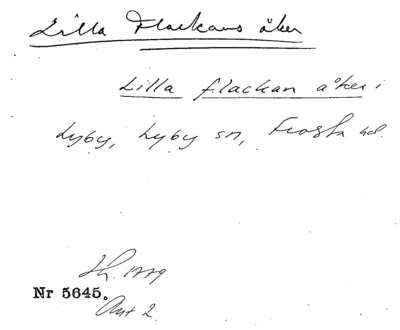 Lilla Flackans åker
Lilla flackan åker i
Lyby, Lyby sn, Frosta hd.
Lh. 1779
Nr 5645.
Ant 2